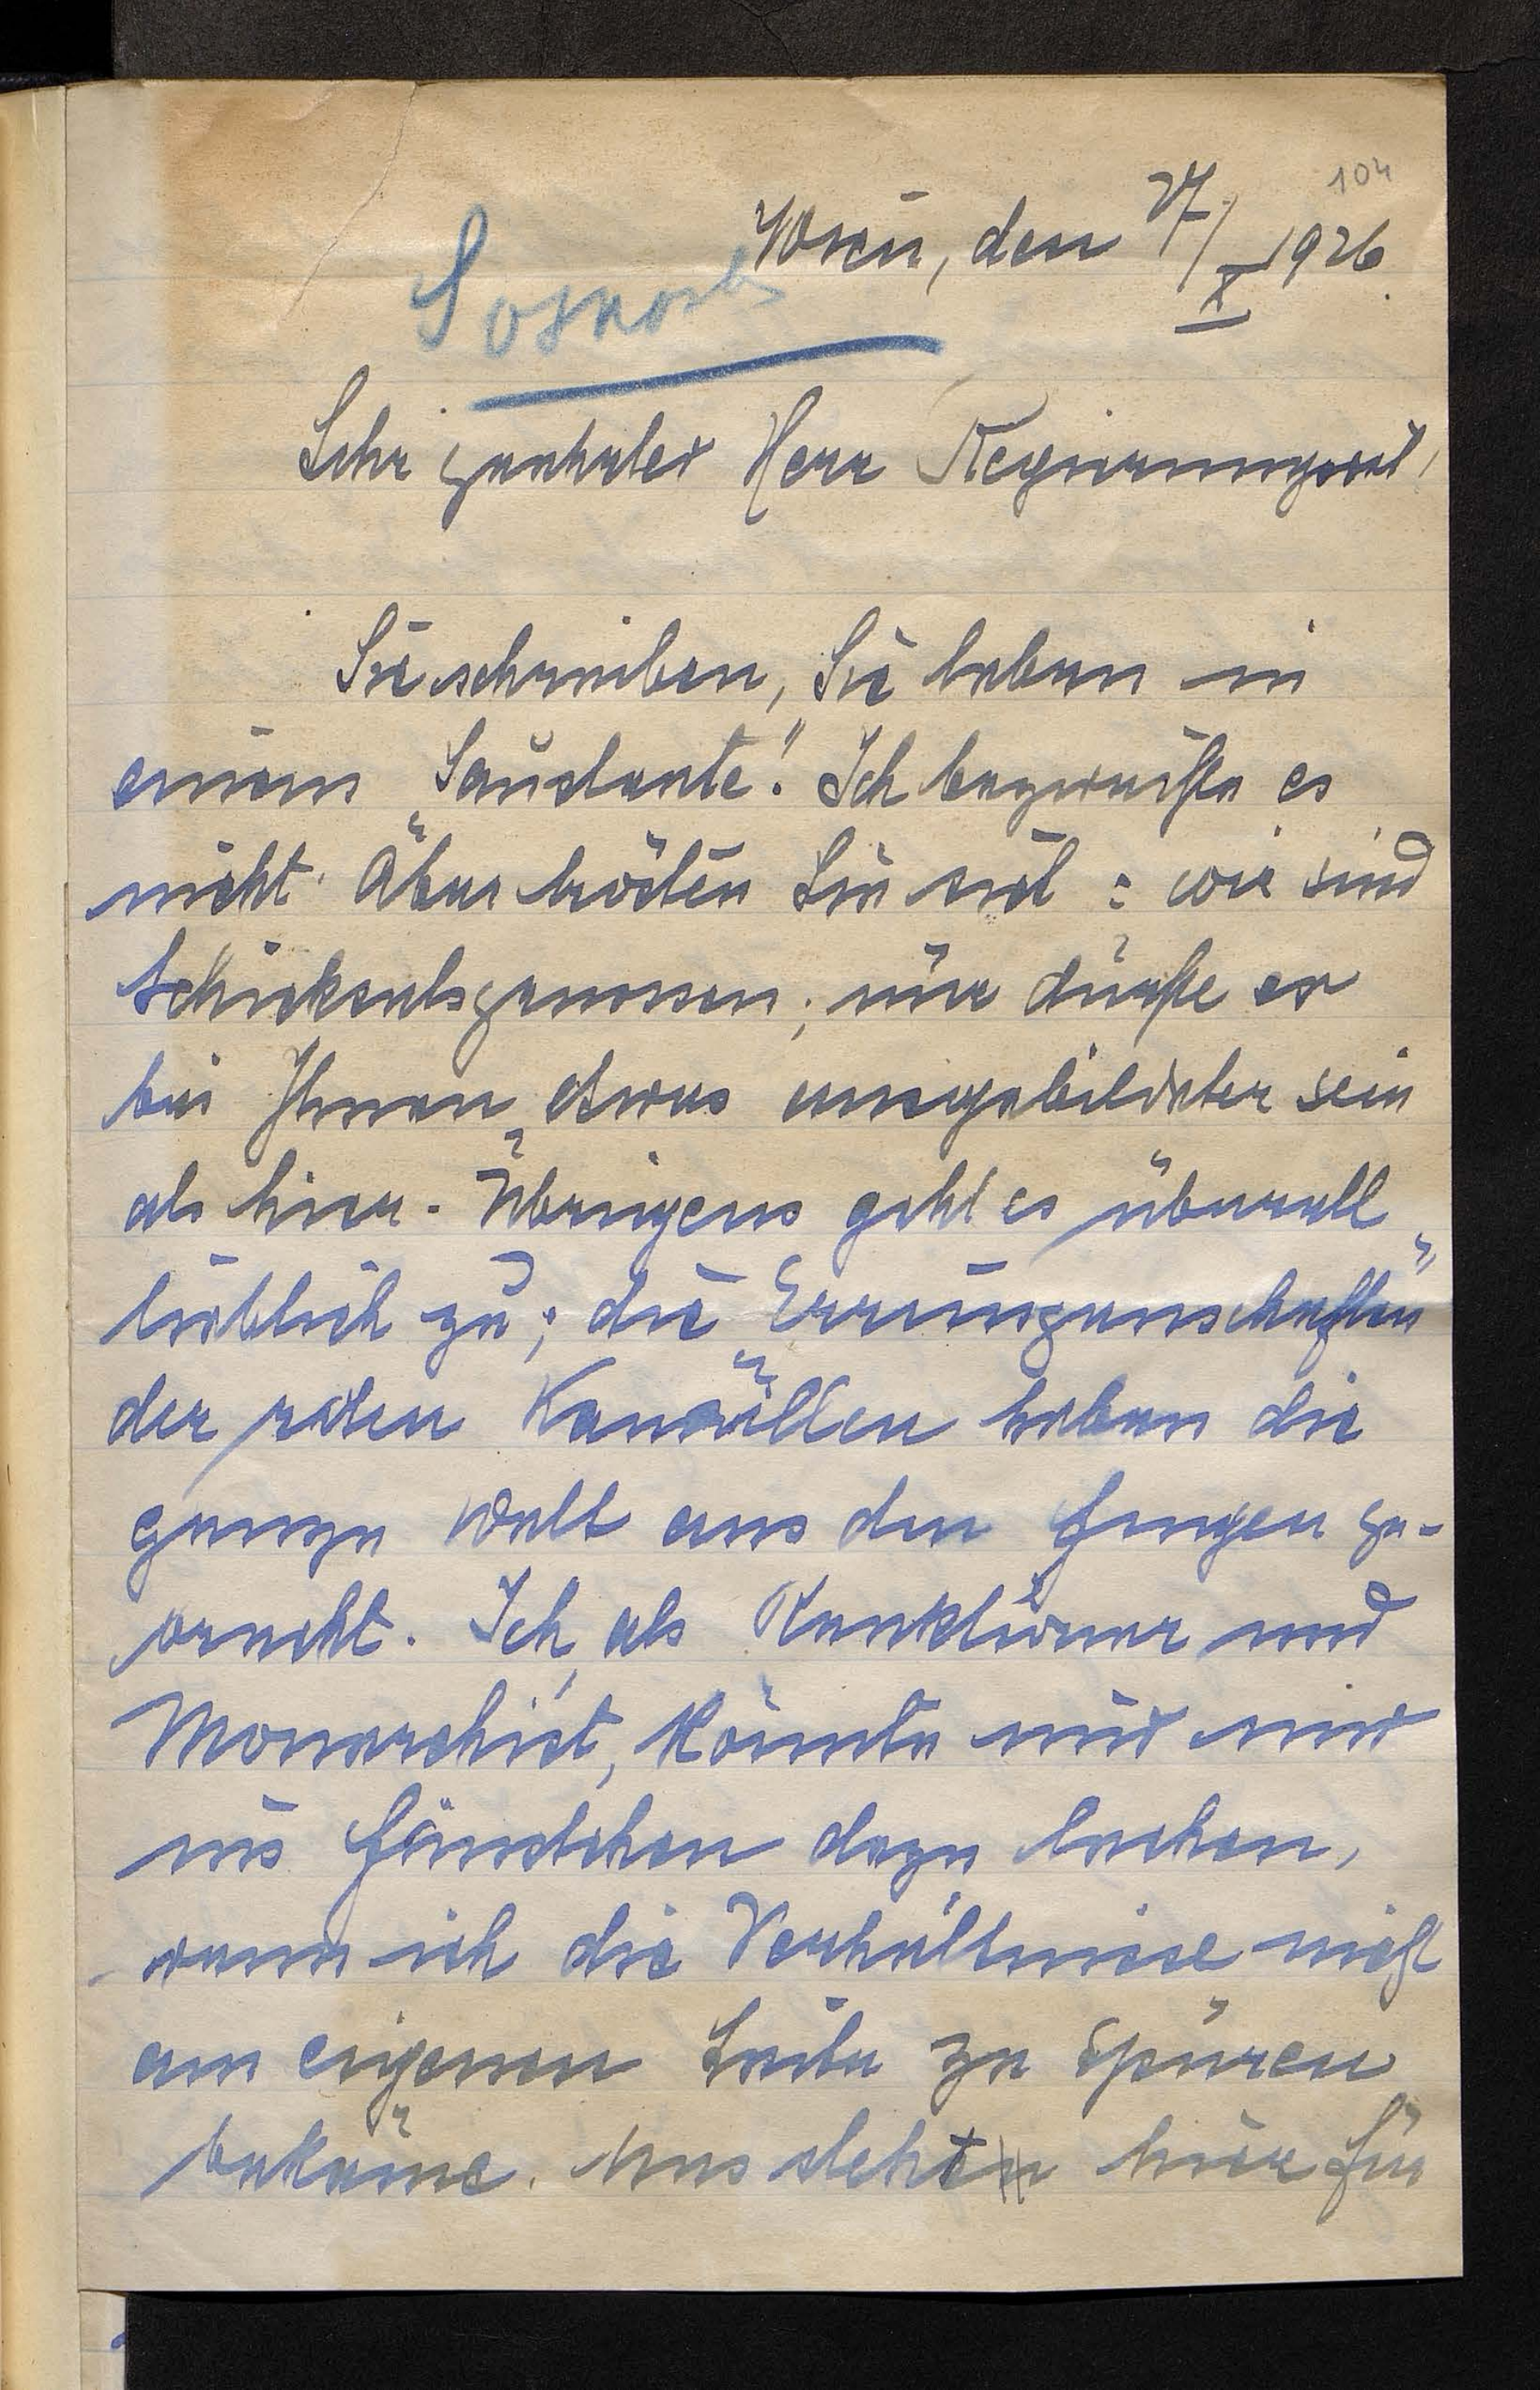 104
Wien, den 27/X 1926.
Sosnosky
Sehr geehrter Herr Regierungsrat!
Sie schreiben, Sie leben in
einem „Saustaate“. Ich bezweifle es
nicht. Aber trösten Sie sich: wir sind
Schicksalsgenossen; nur dürfte er
bei Ihnen etwas ausgebildeter sein
als hier. Übrigens geht es überall
lieblich zu; die „Errungenschaften“
der roten Kanaillen haben die
ganze Welt aus den Fugen ge-
bracht. Ich, als Reaktionär und
Monarchist, könnte mir nur
ins Fäustchen dazu lachen,
wenn ich die Verhältnisse nicht
am eigenen Leibe zu spüren
bekäme. Uns steht hier für